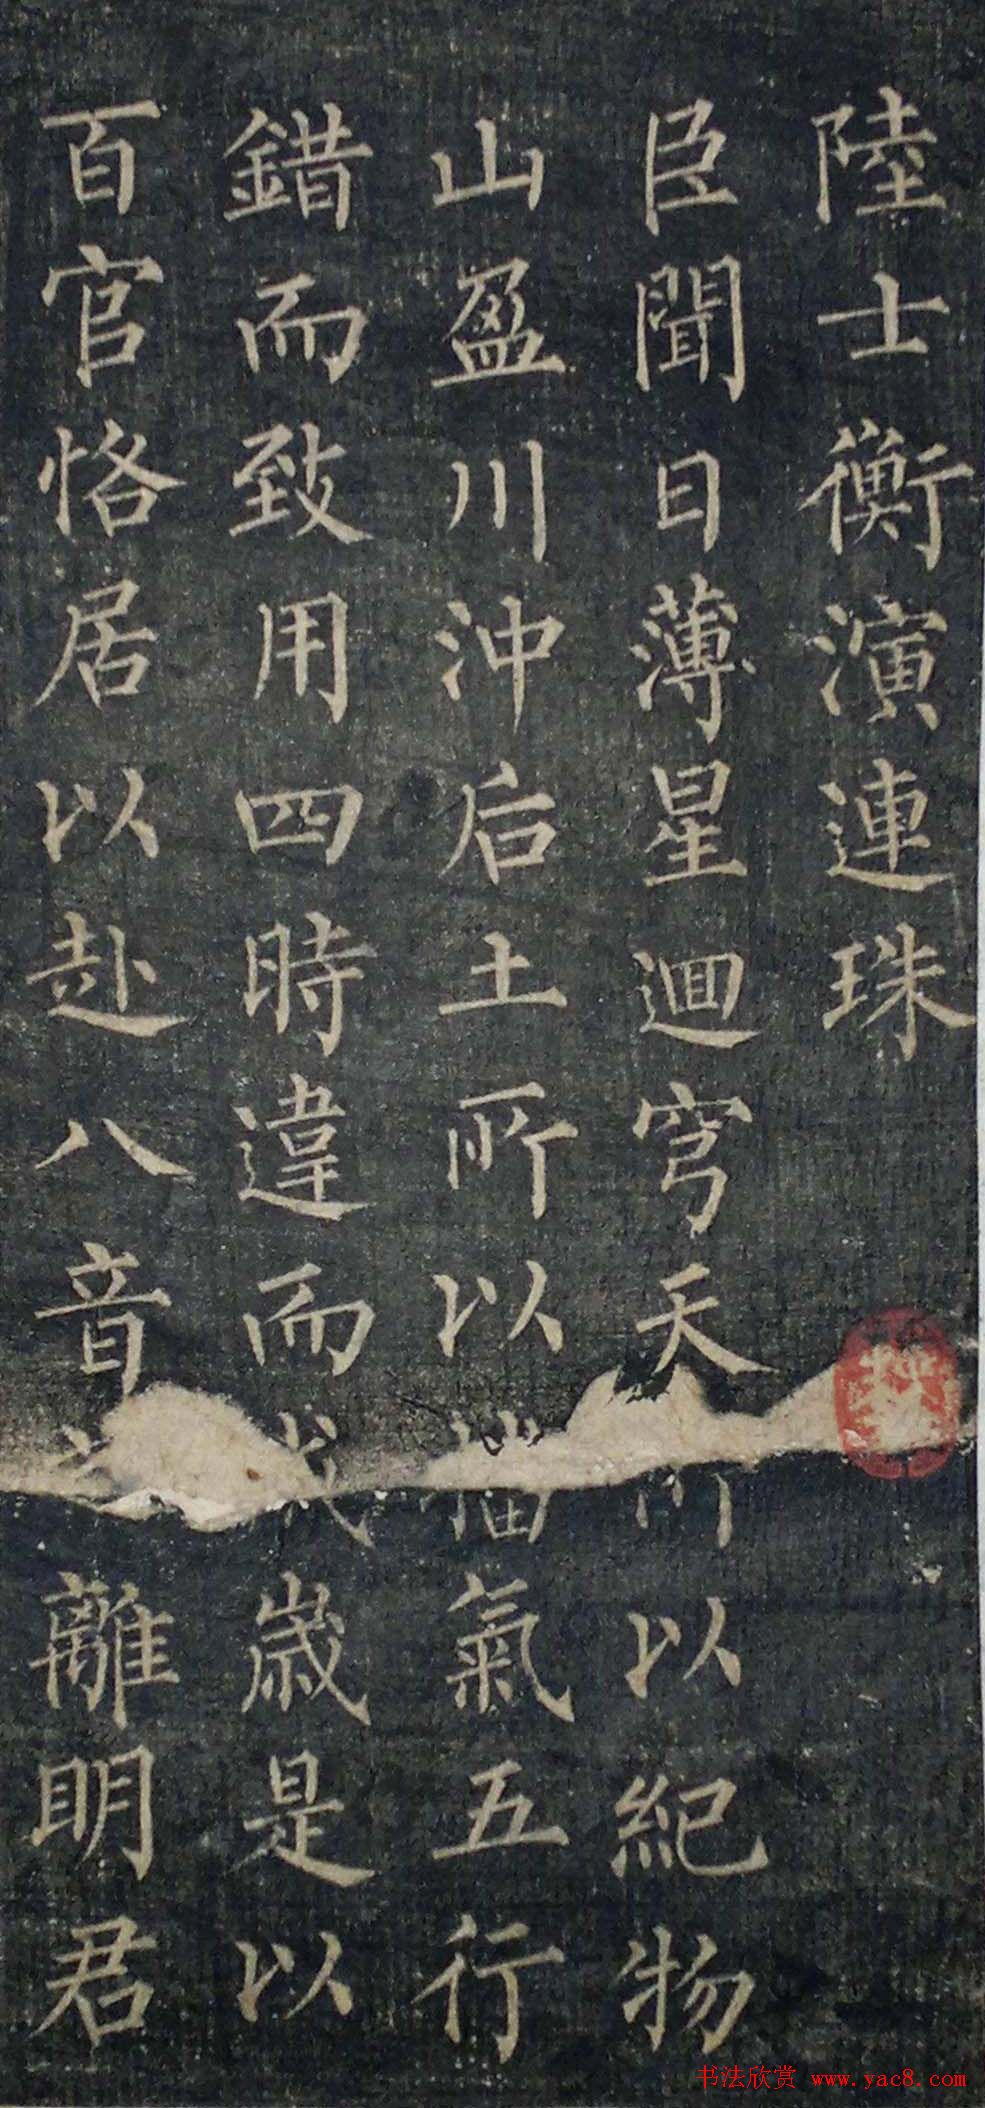 陸士衡演連珠
臣聞日薄星迴穹天所以紀物
山盈川沖后土所以播氣五行
錯而致用四時違而成歲是以
百官恪居以赴八音離明君
书法欣赏 www.yac8.com